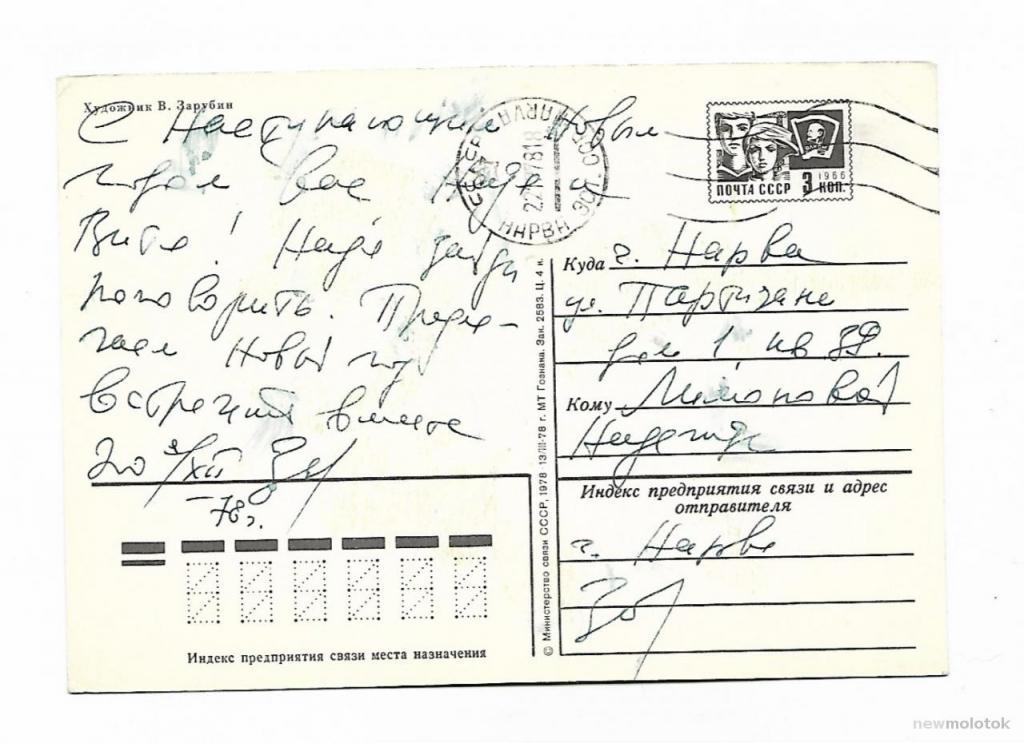 Художник В. Зарубин
С Наступающим Новым
годом Вас Надя и
Витя! Надя зайди
поговорить. Предла-
гаем Новый год
встретить вместе
20/XII
-78 г.
НАРВА
NARVA
22 12 78 18
ПОЧТА СССР 3 КОП.
1966
Куда г. Нарва
ул. Партизане
дом 1 кв 89.
Кому
Надежде
Индекс предприятия связи и адрес
отправителя
г. Нарва
Индекс предприятия связи места назначения
© Министерство связи СССР, 1978 13/III-78 г. МТ Гознака. Зак. 2583. Ц. 4 к.
newmolotok